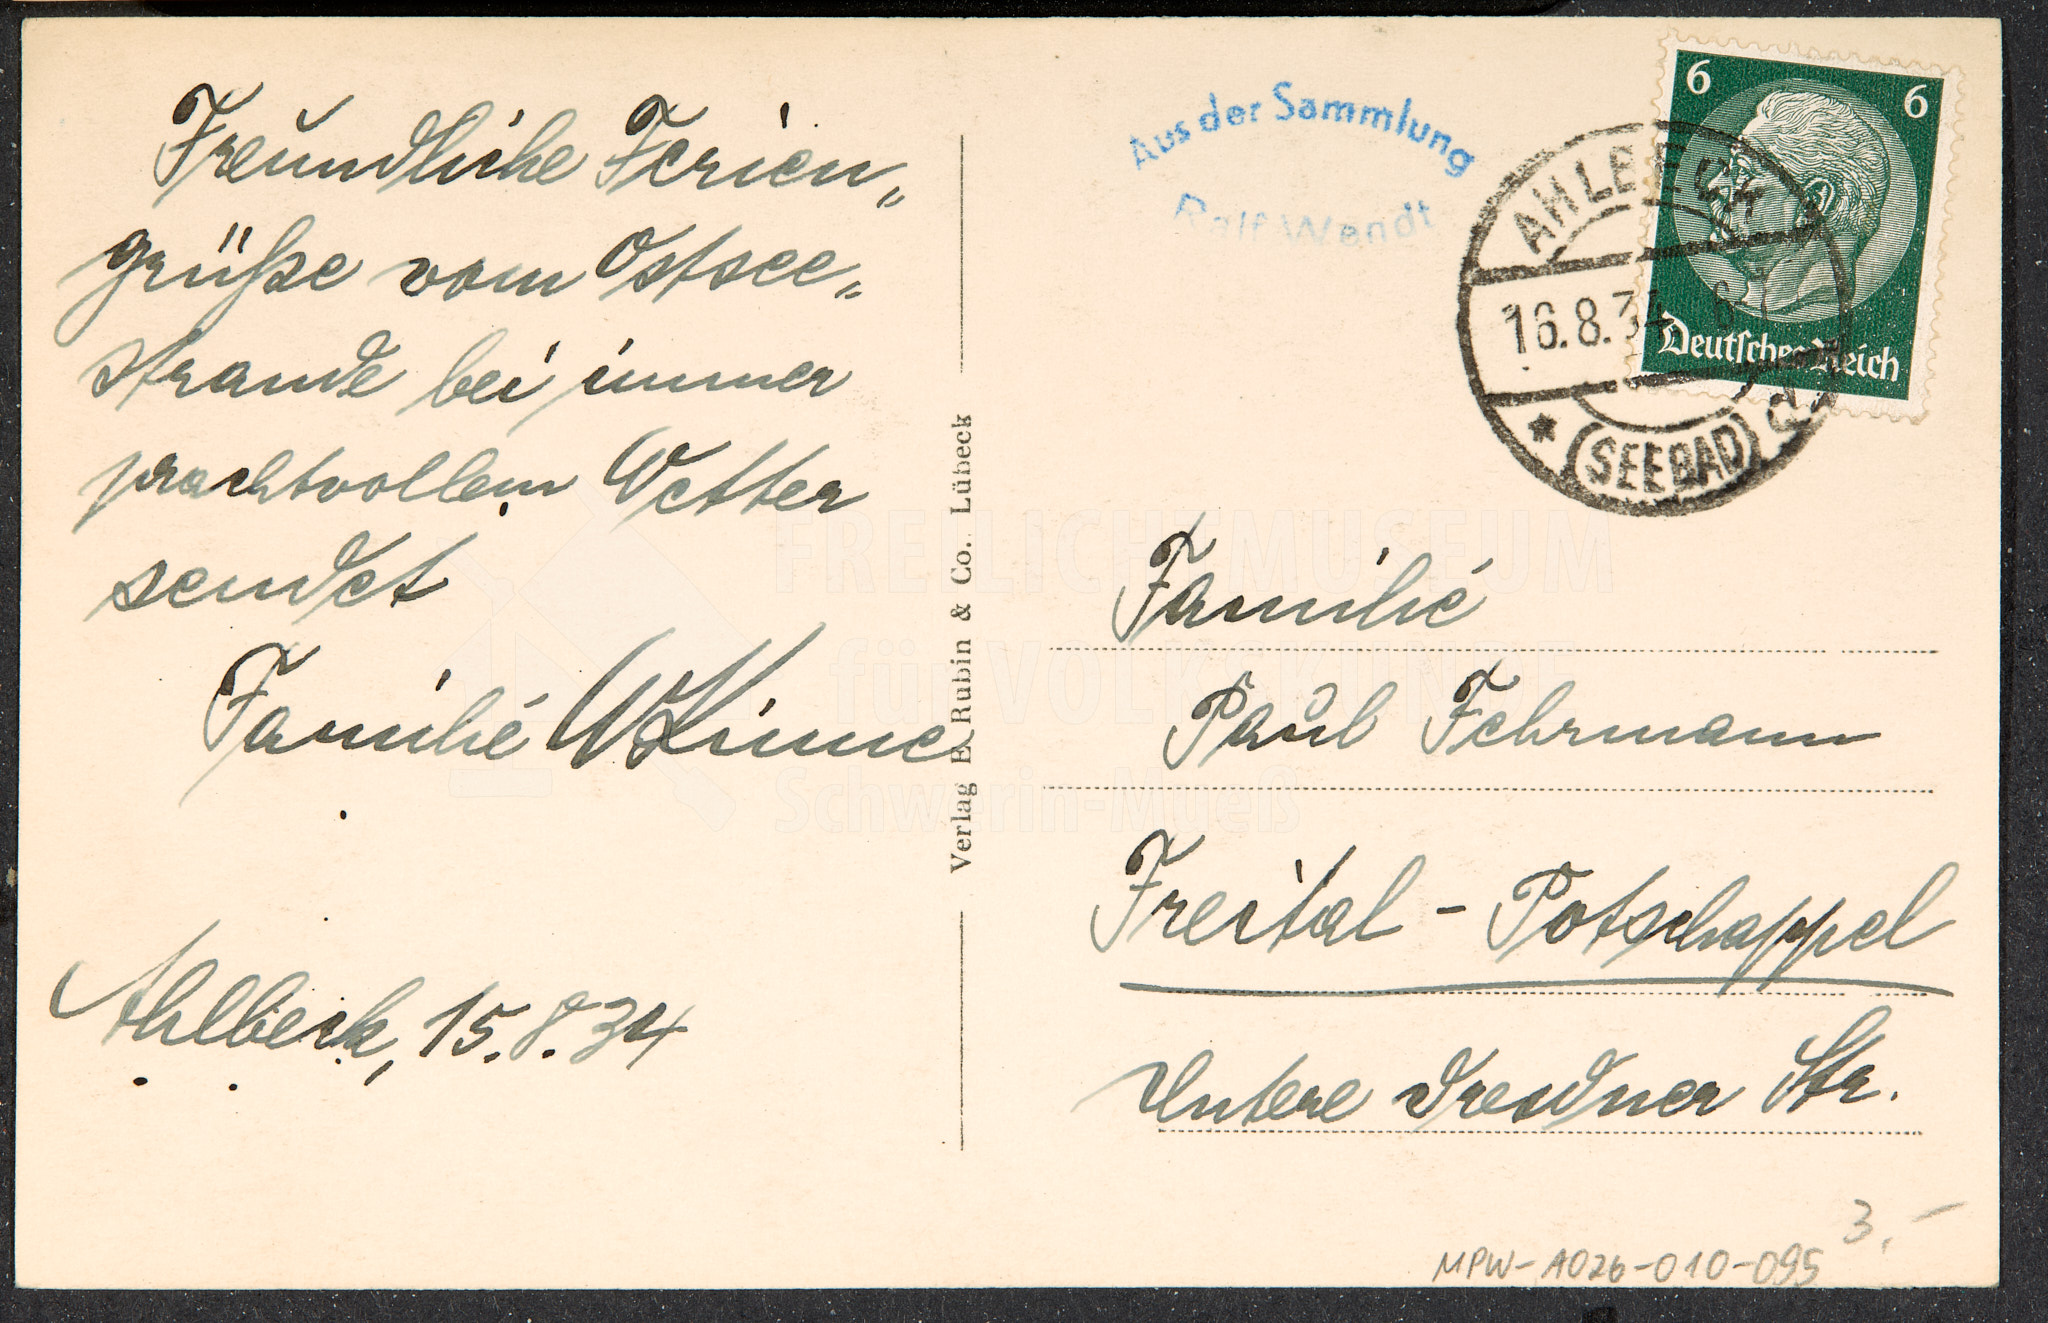 Freundliche Ferien„
grüße vom Ostsee„
strande bei immer
prachtvollem Wetter
sendet
Familie W Kinne
Ahlbeck, 15.8.34
Verlag E. Rubin & Co. Lübeck
Aus der Sammlung
Ralf Wendt
6 6
Deutsches Reich
AHLBECK
16.8.34
(SEEBAD)
Familie
Paul Fehrmann
Freital - Potschappel
Untere Dresdner Str.
3,-
MPW-A026-010-095
FREILICHTMUSEUM
für VOLKSKUNDE
Schwerin-Mueß